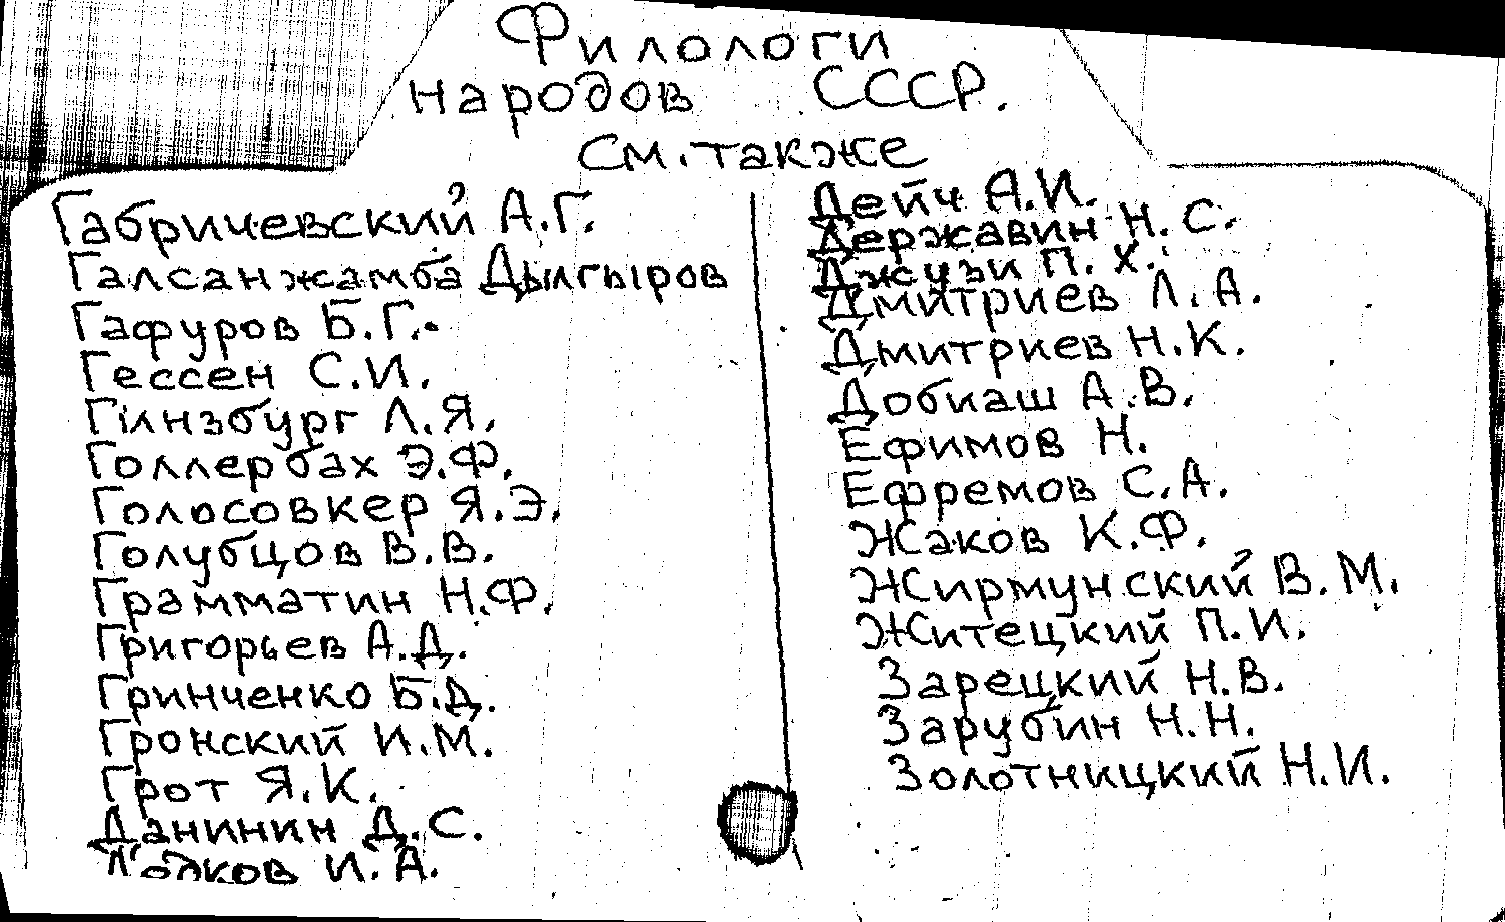 Филологи
народов СССР.
см. также
Габричевский А.Г.
Галсанжамба Дылгыров
Гафуров Б.Г.
Гессен С.И.
Гинзбург Л.Я.
Голлербах Э.Ф.
Голосовкер Я.Э.
Голубцов В.В.
Грамматин Н.Ф.
Григорьев А.Д.
Гринченко Б.Д.
Гронский И.М.
Грот Я.К.
Данинин Д.С.
И.А.
Дейч А.И.
Державин Н.С.
Джузи П.Х.
Дмитриев Л.А.
Дмитриев Н.К.
Добиаш А.В.
Ефимов Н.
Ефремов С.А.
Жаков К.Ф.
Жирмунский В.М.
Житецкий П.И.
Зарецкий Н.В.
Зарубин Н.Н.
Золотницкий Н.И.